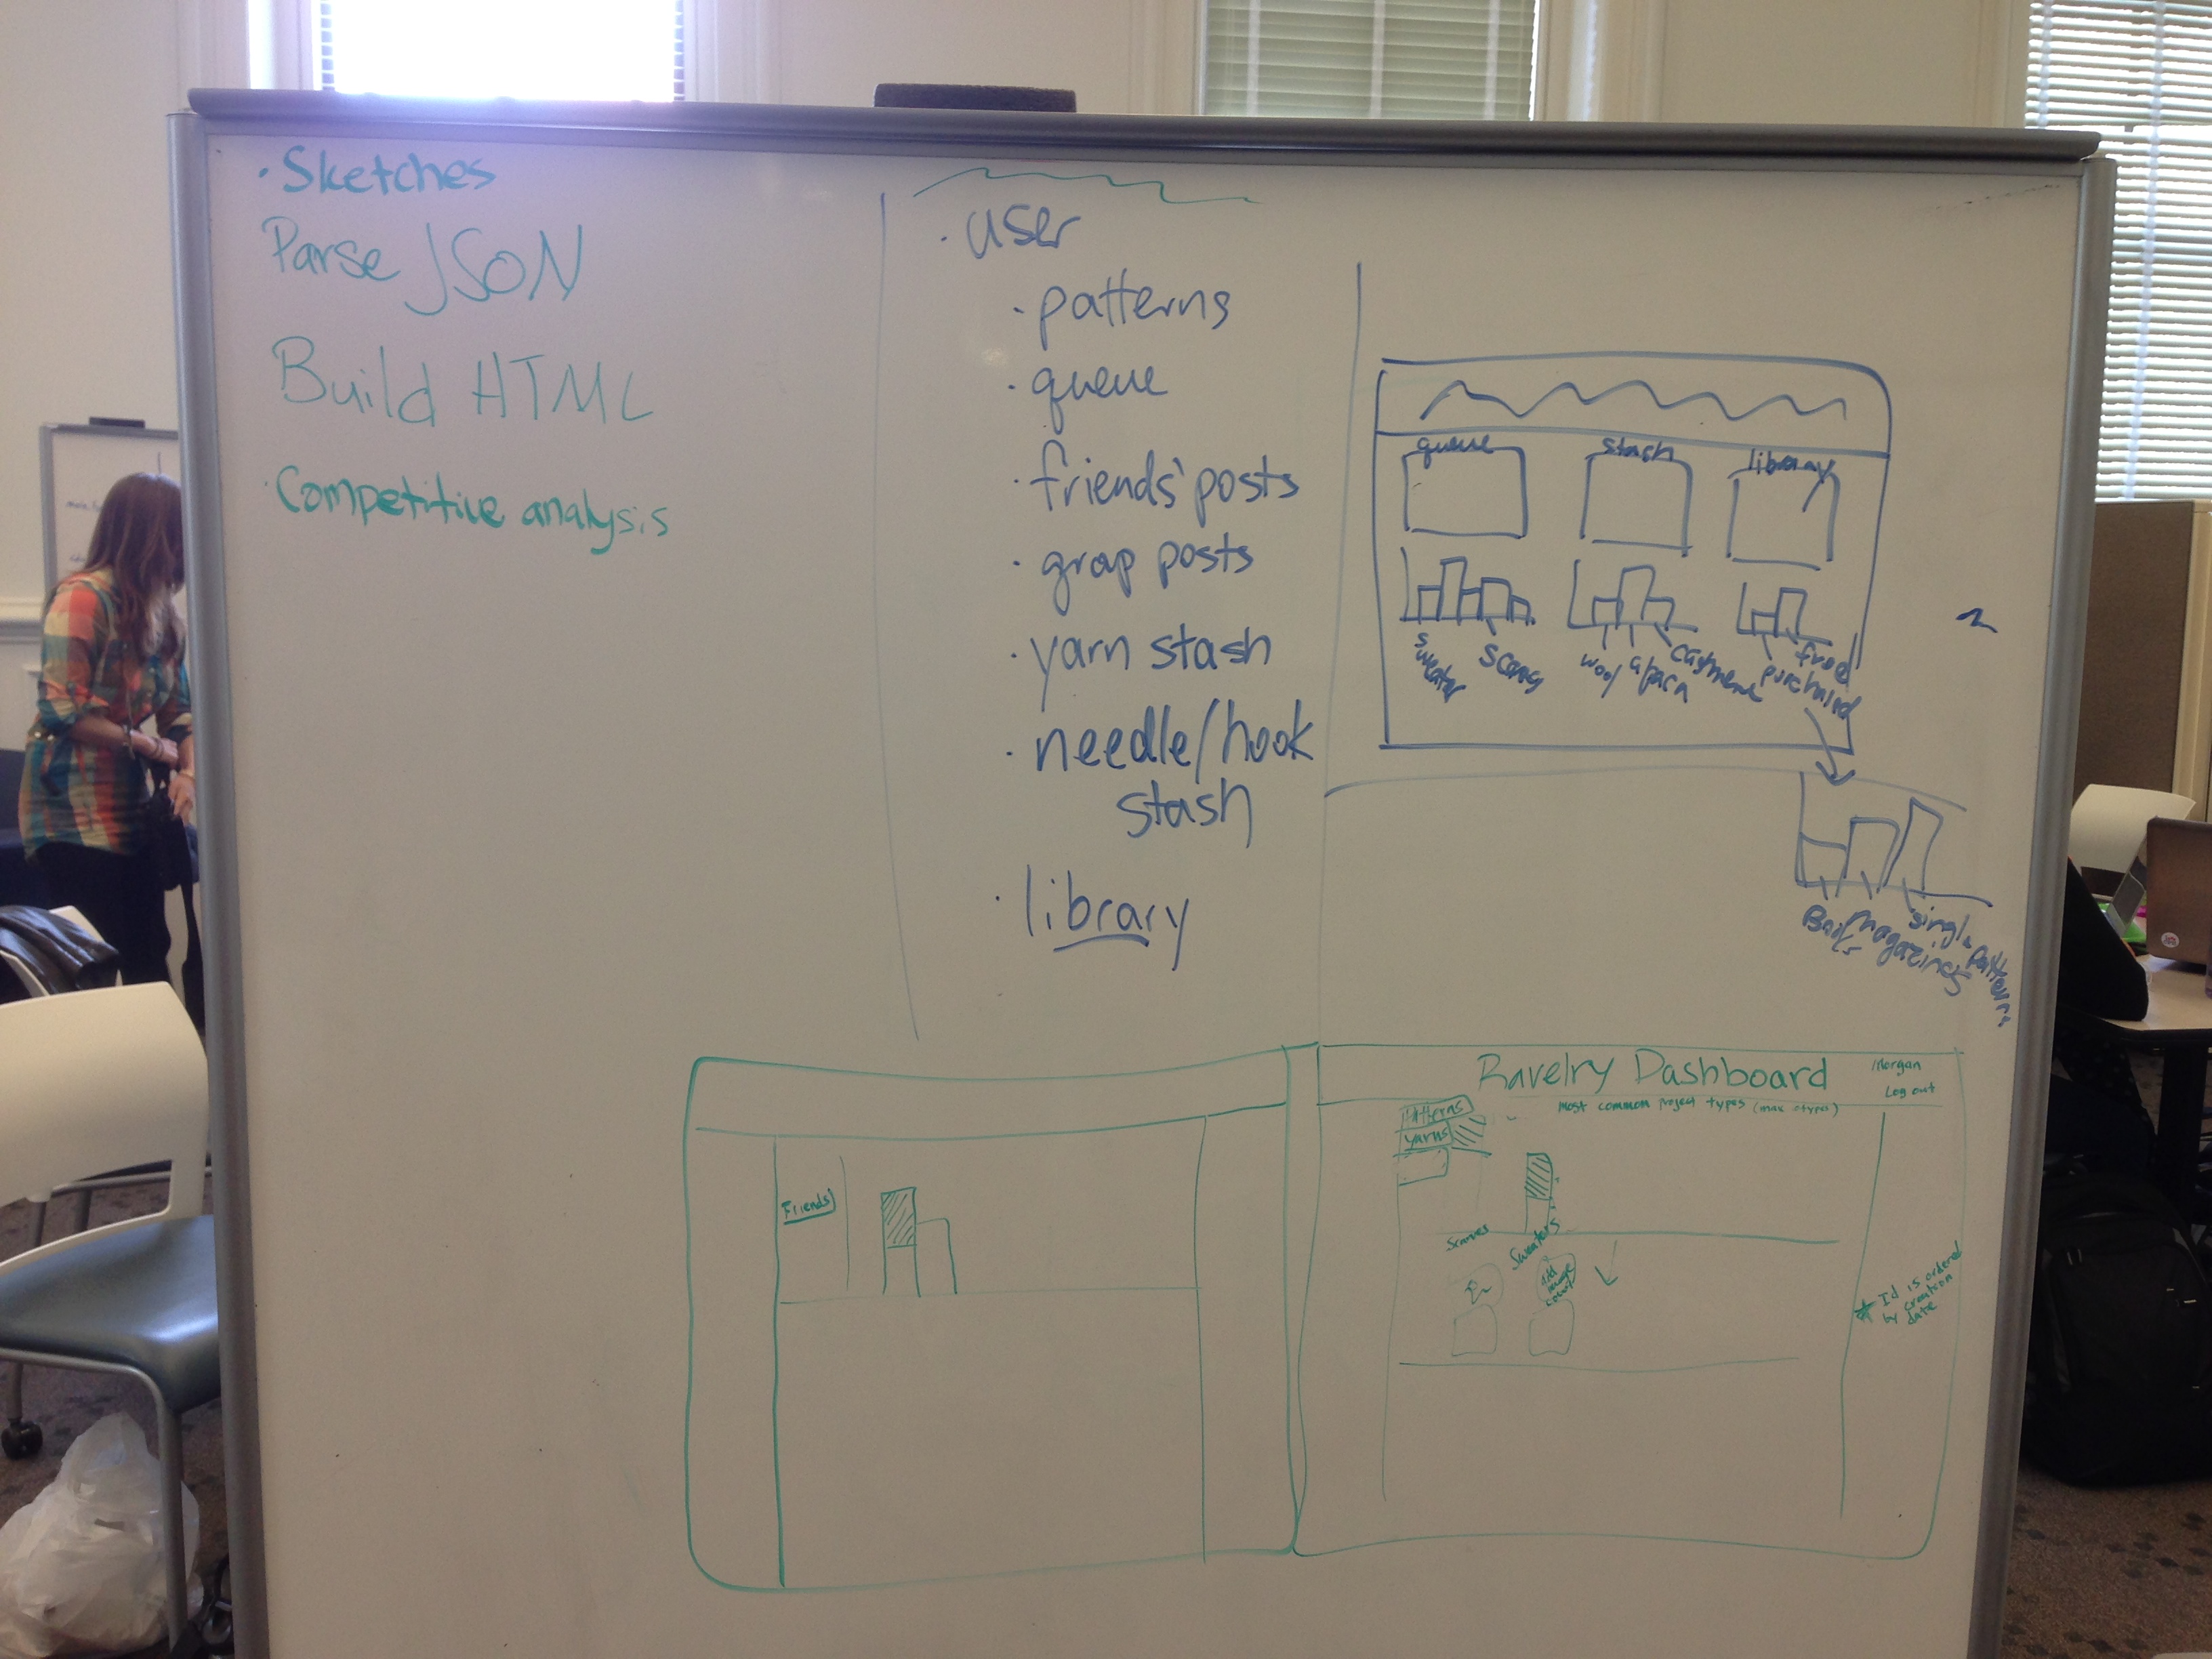 · Sketches
Parse JSON
Build HTML
· Competitive analysis
· user
· patterns
· queue
· friends' posts
· grap posts
· yarn stash
· needle/hook
stash
· library
queue
stash
library
sweater
wool
cashmere
purchased
magazines
single
patterns
Ravelry Dashboard
Morgan
Log out
most common project types (max
Patterns
Yarns
Scarves
Sweaters
Friends
* Id is ordered
by creation
date